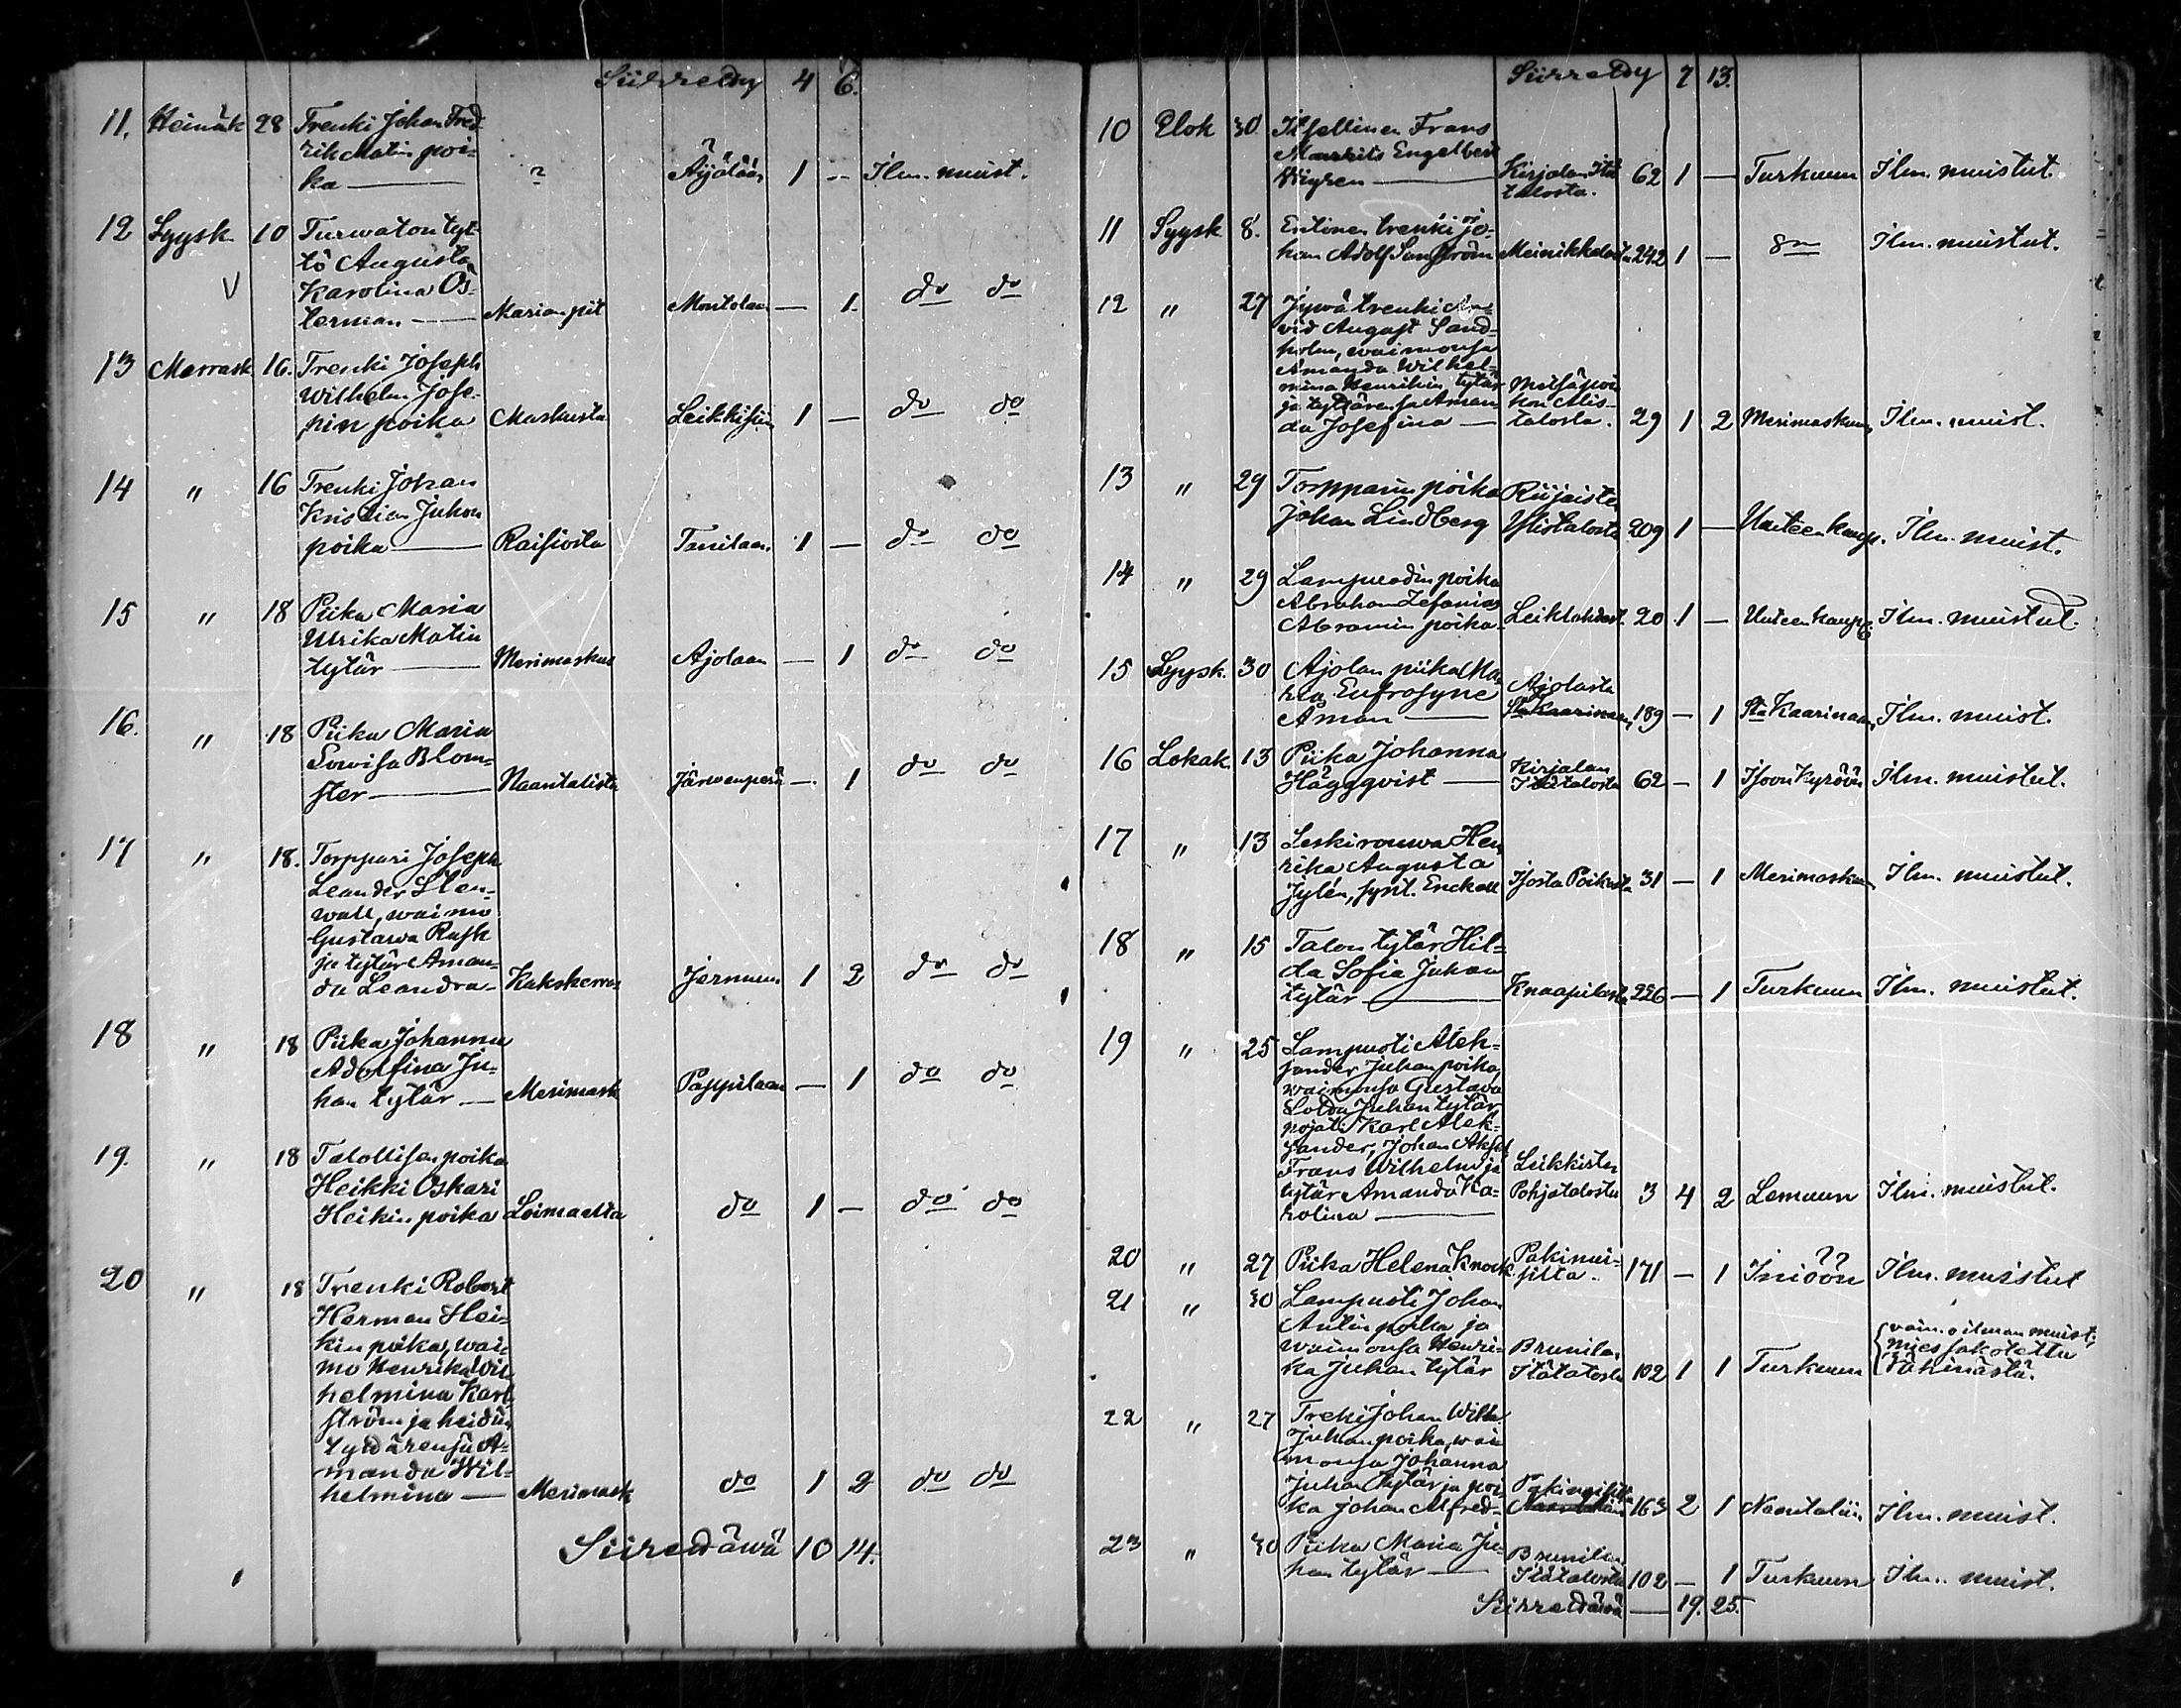 Siirretty 4 6.
11. Heinäk 28 Trenki Johan Fred
rik Matin poi-
ka — ? Äijälään 1 — Ilm. muist.
12 Syysk. 10 Turwaton tyt-
tö Augusta
Karolina Ös-
terman — Marian pit Montolan — 1. do do
13 Marrask 16. Trenki Joseph
Wilhelm Jose-
pin poika Maskusta Leikkisiin 1 — do do
14 " 16 Trenki Johan
Kristian Juhon
poika — Raisiosta Tanilaan 1 — do do
15 " 18 Piika Maria
Ulrika Matin
tytär — Merimaskus Ajolaan — 1 do do
16. " 18 Piika Maria
Lowisa Blom-
ster — Naantalista Järwenperä — 1 do do
17 " 18. Torppari Joseph
Leander Sten-
wall, waimo
Gustawa Rush
ja tytär Aman-
da Leandra — Kakskerras Jermuun 1 2 do do
18 " 18 Piika Johanna
Adolfina Ju-
han tytär — Merimask Pappilaan — 1 do do
19. " 18 Talollisen poika
Heikki Oskari
Heikin poika Loimaalta do 1 — do do
20 " 18 Trenki Robert
Herman Hei-
kin poika, wai-
mo Henrika Wil
helmina Karl
ström ja heidän
tyttärensä A-
manda Wil-
helmina — Merimask do 1 2 do do
Siirrettäwä 10 14.
Siirretty 7 13.
10 Elok 30 Itsellinen Frans
Mauritz Engelbert
Wigren — Kirjalan Itä
talosta. 62 1 — Turkuun Ilm. muistut.
11 Syysk 8. Entinen trenki Jo-
han Adolf Sanström Meinikkalasta 242 1 — do Ilm. muistut.
12 " 27 Jywä trenki Ar-
vid August Sand-
holm, waimonsa
Amanda Wilhel-
mina Henrikin tytär
ja tyttärensä Aman-
da Josefina — talosta. 29 1 2 Merimaskuun Ilm. muist.
13 " 29 Torpparin poika Riijaisten
Johan Lindberg Ylistalosta 209 1 — Uuteen kaup. Ilm. muist.
14 " 29 Lampuodin poika
Abraham Zefanias
Abramin poika Leiklahdest. 20 1 — Uuteen kaup Ilm. muistut.
15 Syysk. 30 Ajolan piika Ma
ria Eufrosyne Ajolasta
Åman — Sta Kaarinaan 189 — 1 Sta Kaarinaan Ilm. muist.
16 Lokak. 13 Piika Johanna Kirjalan
Häggqvist — Itätalosta 62 — 1 Isoon Kyröön Ilm. muistut.
17 " 13 Leskirouwa Hen
rika Augusta
Jylén, synt. Enckell Isosta Poikosta 31 — 1 Merimaskuun Ilm. muistut.
18 " 15 Talon tytär Hil-
da Sofia Juhan
tytär — Knaapilasta 226 — 1 Turkuun Ilm. muistut.
19 " 25 Lampuoti Alek-
sander Juhan poika
waimonsa Gustava
Lovisa Juhan tytär
pojat: Karl Alek-
sander, Johan Aksel
Frans Wilhelm ja Leikkisten
tytär Amanda Ka- Pohjatalosta 3 4 2 Lemuun Ilm. muistut.
rolina —
20 " 27 Piika Helena Knock Pakinai-
silta. 171 — 1 Iniöön Ilm. muistut
21 " 30 Lampuoti Johan
Antin poika ja
waimonsa Henri- Brunilan
ka Juhan tytär Itätalosta 102 1 1 Turkuun {vaim. ilman muist.
mies sakotettu
räkinästä.
22 " 27 Treki Johan Wilh.
Juhan poika, wai
monsa Johanna
Juhan tytär ja poi- Pakinaisilta
ka Johan Alfred — 163 2 1 Naantaliin Ilm. muist.
23 " 30 Piika Maria Ju- Brunilan
han tytär — Itätalosta 102 — 1 Turkuun Ilm. muist.
Siirrettäwä — 19. 25.